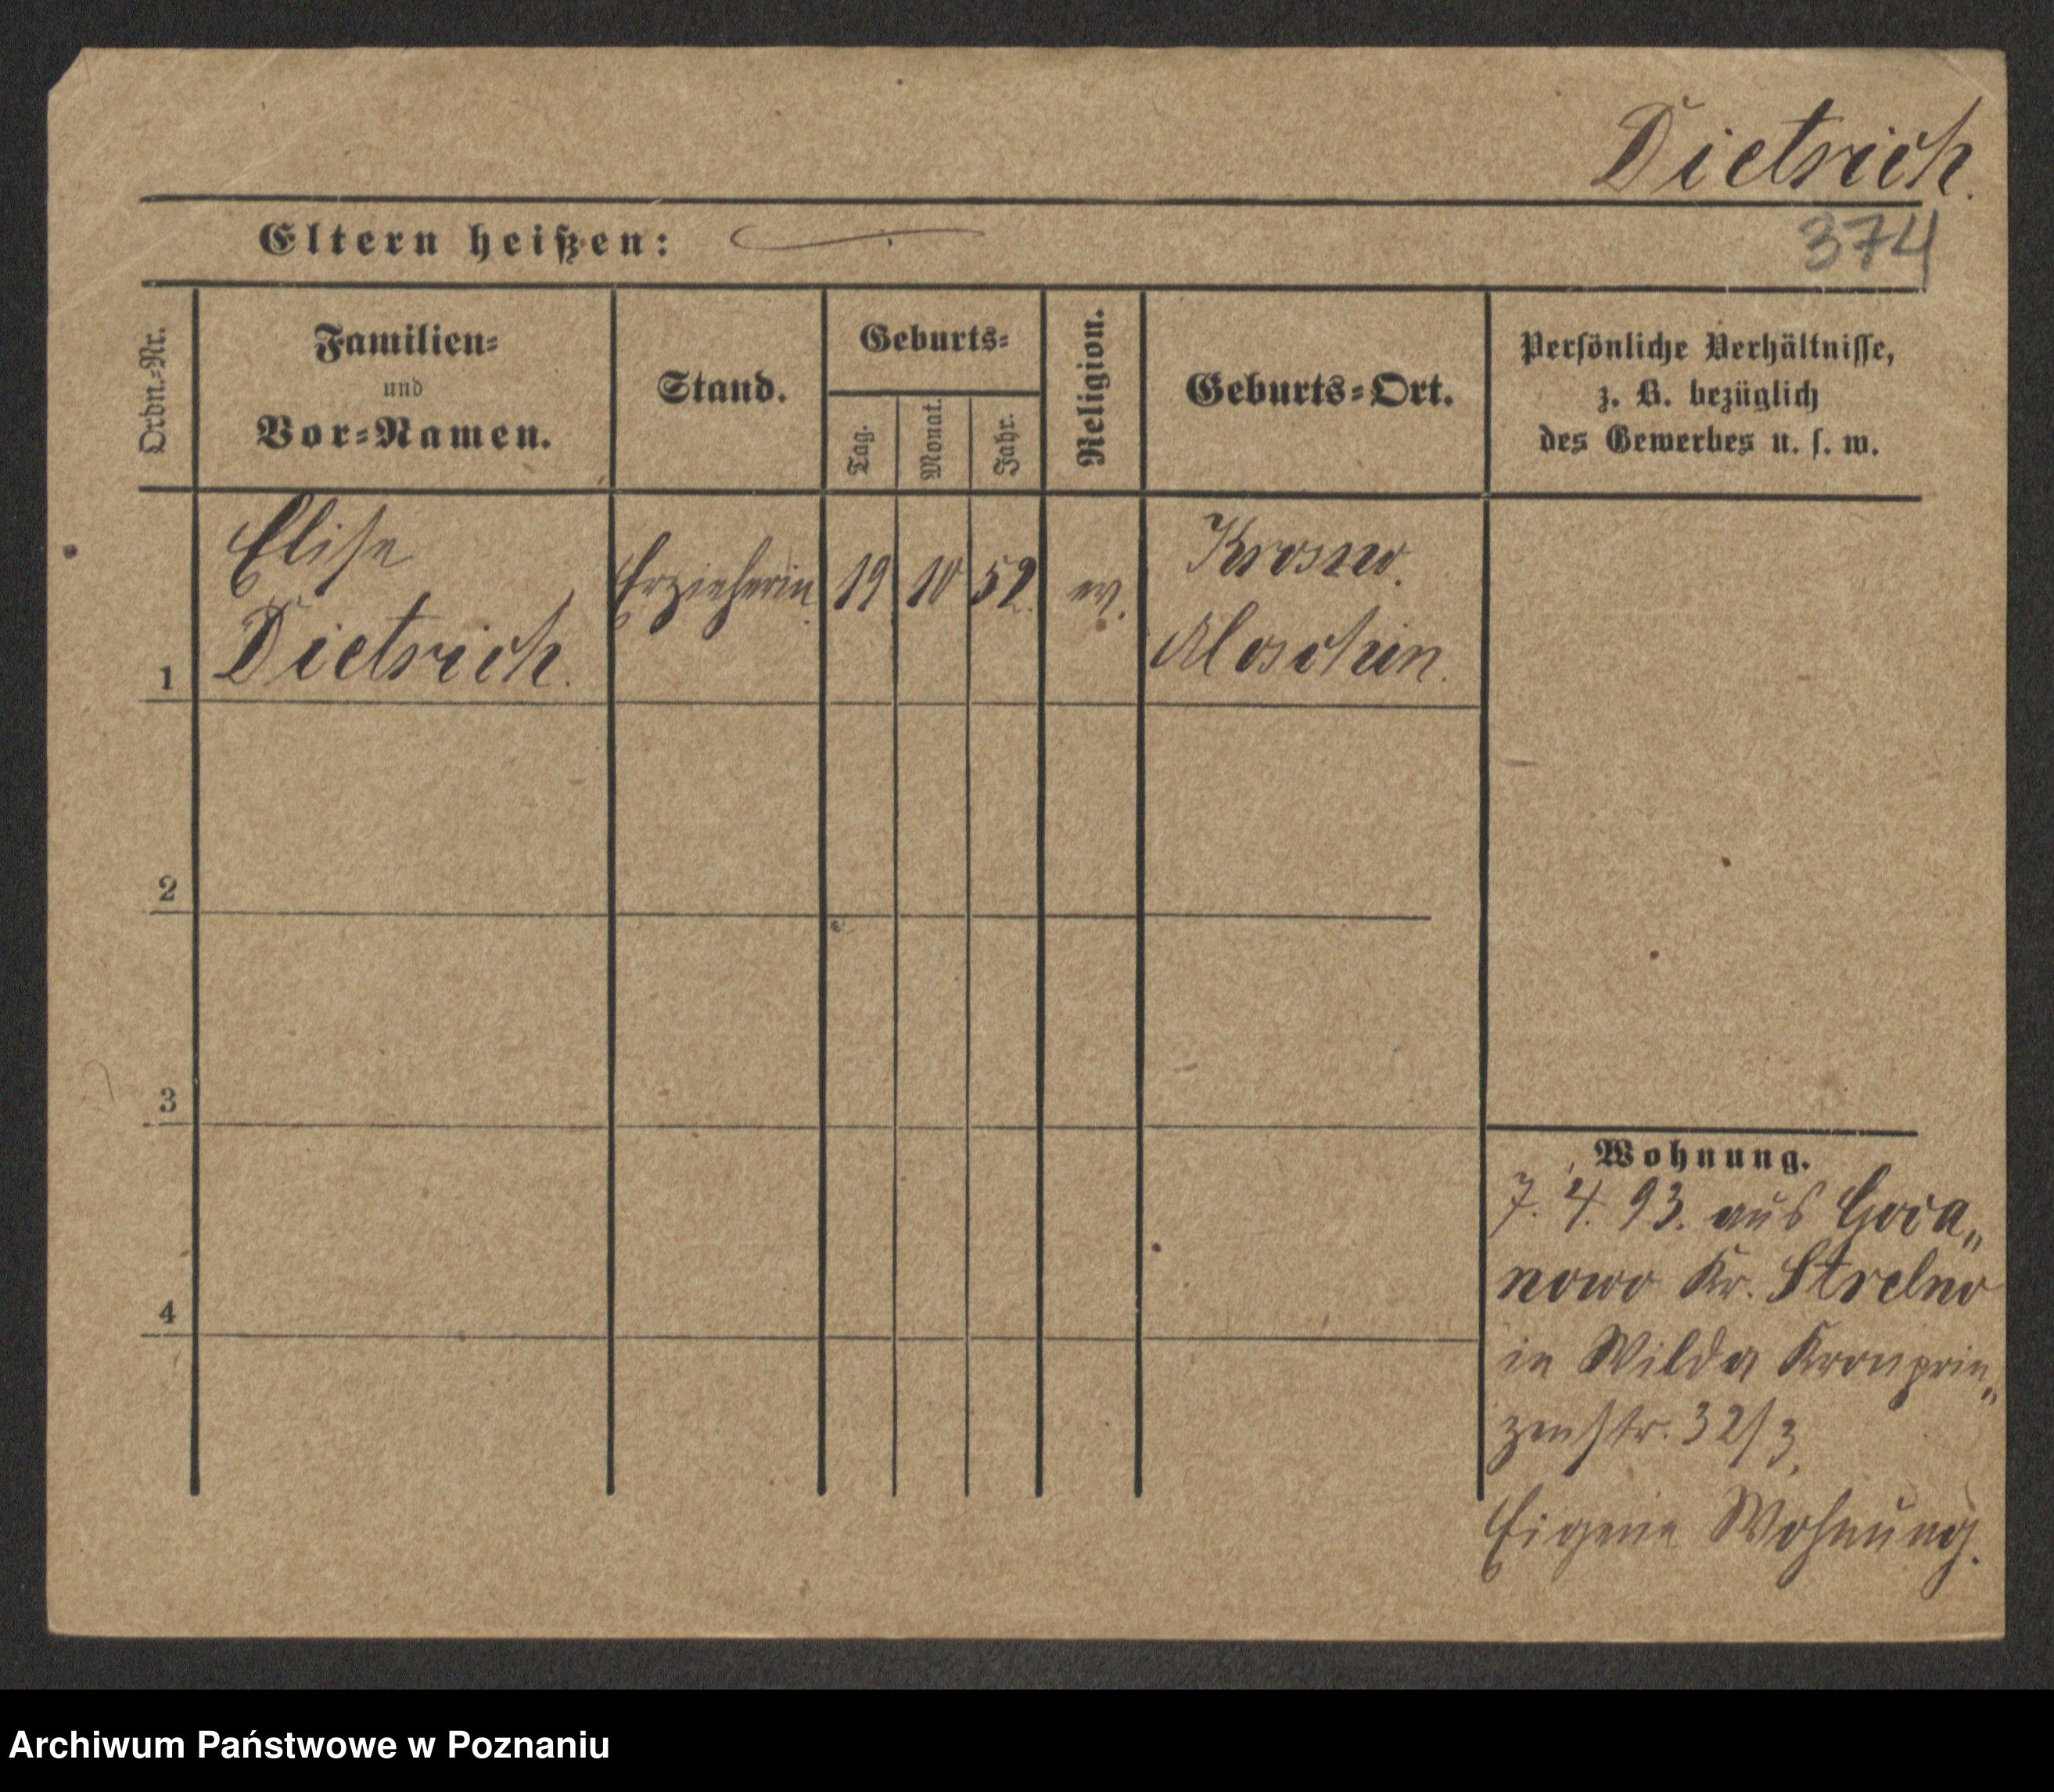 Dietrich.
Eltern heißen:
374
Ordn.-Nr.
Familien-
und
Vor-Namen.
Stand.
Geburts-
Tag.
Monat.
Jahr.
Religion.
Geburts-Ort.
Persönliche Verhältnisse,
z. B. bezüglich
des Gewerbes u. s. w.
1
Elise
Dietrich.
Erzieherin.
19
10
52.
ev.
Krosno.
Moschin.
2
3
4
Wohnung.
7. 4. 93. aus Goia„
nowo Kr. Strelno
in Wilda Kronprin„
zenstr. 32/3.
Eigene Wohnung.
Archiwum Państwowe w Poznaniu